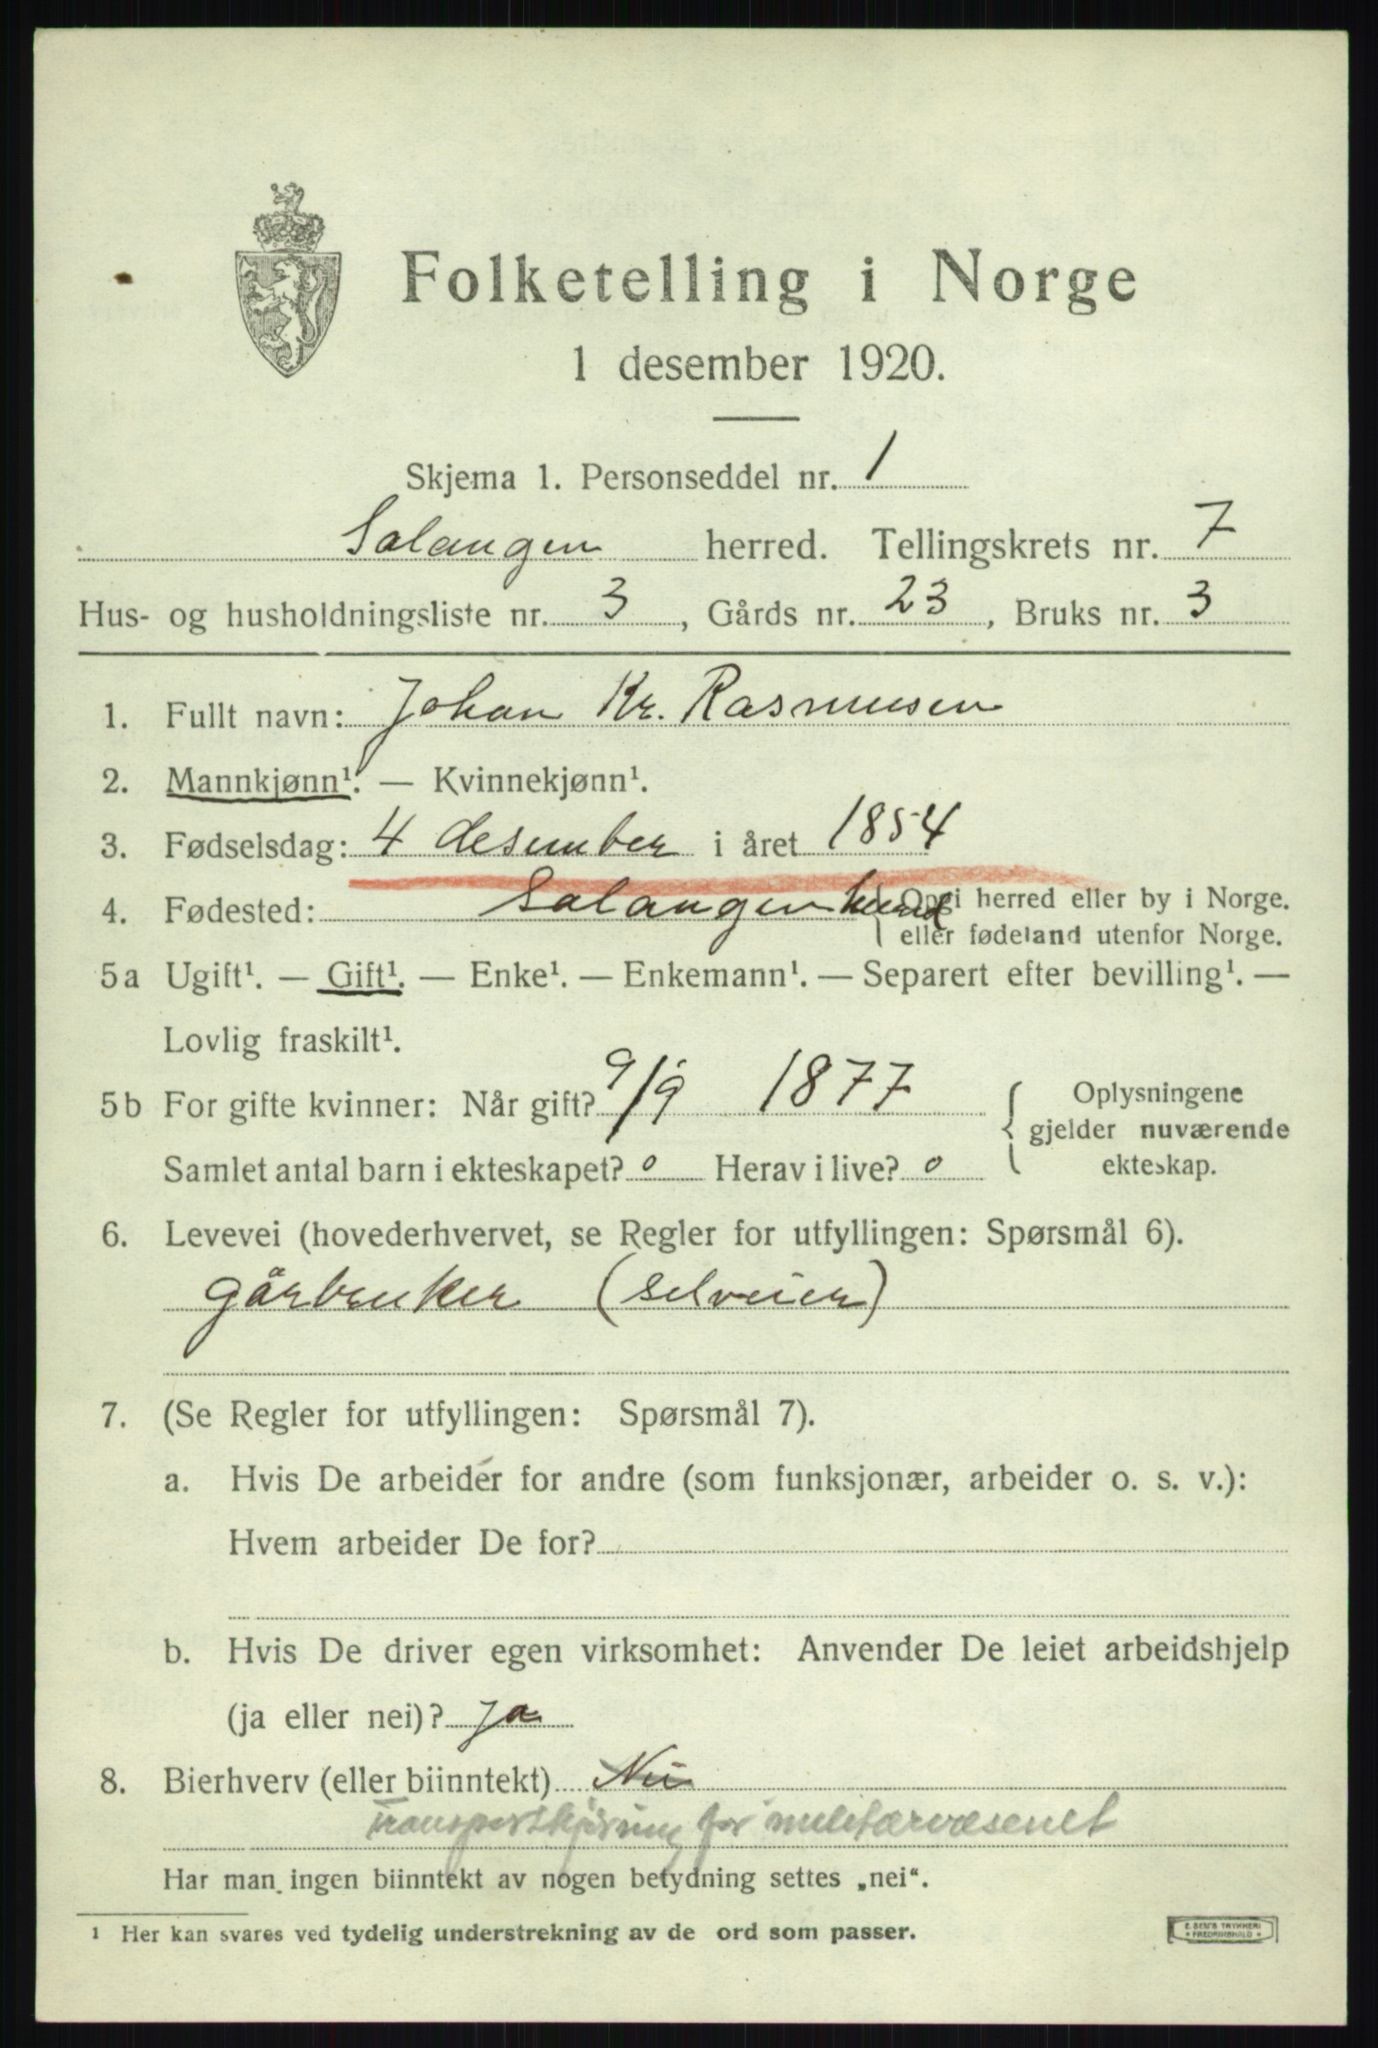 Folketelling i Norge
1 desember 1920.
Skjema 1. Personseddel nr. 1
Salangen herred. Tellingskrets nr. 7
Hus- og husholdningsliste nr. 3, Gårds nr. 23, Bruks nr. 3
1. Fullt navn: Johan Kr. Rasmusen
2. Mannkjønn¹. — Kvinnekjønn¹.
3. Fødselsdag: 4 desember i året 1854
4. Fødested: Salangen herred { Opgi herred eller by i Norge.
eller fødeland utenfor Norge.
5a Ugift¹. — Gift¹. — Enke¹. — Enkemann¹. — Separert efter bevilling¹. —
Lovlig fraskilt¹.
5b For gifte kvinner: Når gift? 9/9 1877
Samlet antal barn i ekteskapet? 0 Herav i live? 0
Oplysningene
gjelder nuværende
ekteskap.
6. Levevei (hovederhvervet, se Regler for utfyllingen: Spørsmål 6).
gårbruker (selveier)
7. (Se Regler for utfyllingen: Spørsmål 7).
a. Hvis De arbeider for andre (som funksjonær, arbeider o. s. v.):
Hvem arbeider De for?
b. Hvis De driver egen virksomhet: Anvender De leiet arbeidshjelp
(ja eller nei)? Ja
8. Bierhverv (eller biinntekt) Nei
Transportkjøring for militærvæsenet
Har man ingen biinntekt av nogen betydning settes „nei“.
1 Her kan svares ved tydelig understrekning av de ord som passer.
E. SEM'S TRYKKERI
* FREDRIKSHALD *